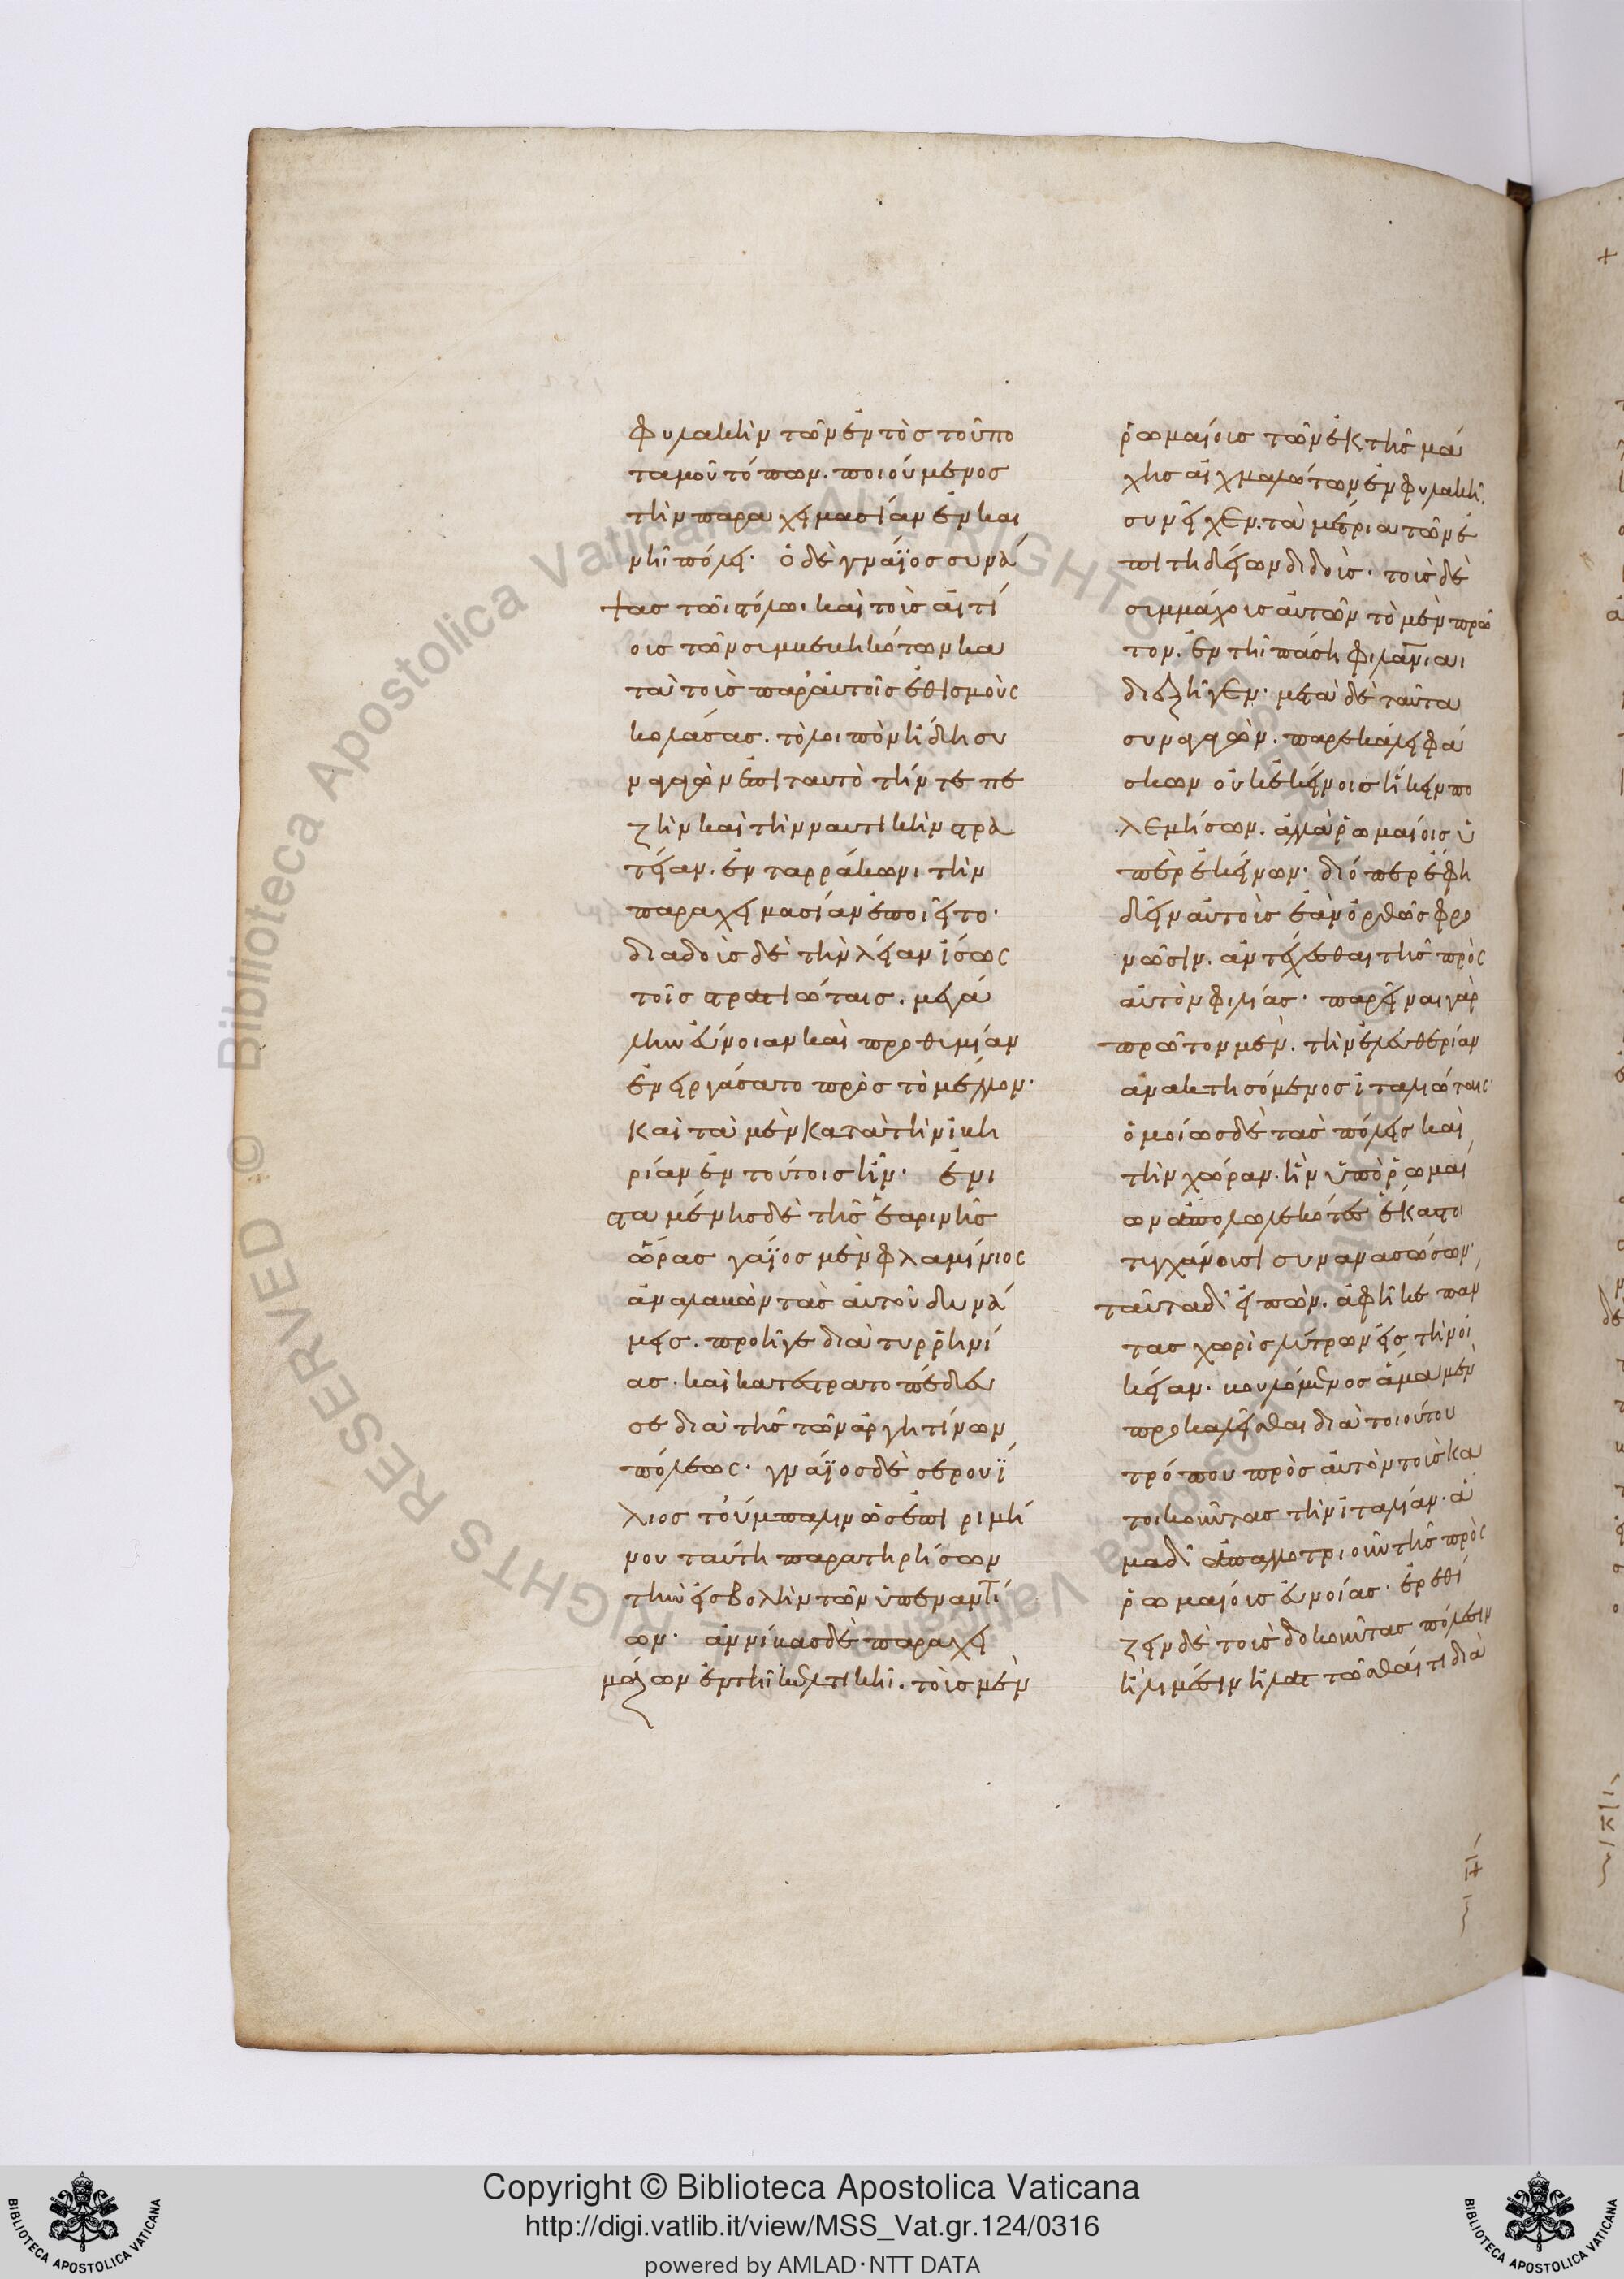 φυλακὴν τῶν ἐντὸς τοῦ πο
ταμοῦ τόπων. ποιούμενος
τὴν παραχειμασίαν ἐν και
νῆι πόλει· ὁ δὲ γνάϊος συνά
ψας τῶι στόλωι καὶ τοὺς αἰτί
ους τῶν συμβεβηκότων κα
τὰ τοὺς παρ' αὐτοῖς ἐθισμοὺς
κολάσας. τὸ λοιπὸν ἤδη συ
ναγαγὼν ἐπὶ ταυτὸ τήν τε πε
ζὴν καὶ τὴν ναυτικὴν στρα
τείαν. ἐν ταρράκωνι τὴν
παραχειμασίαν ἐποιεῖτο·
διαδοὺς δὲ τὴν λείαν ἴσως
τοῖς στρατιώταις. μεγά
λην εὔνοιαν καὶ προθυμίαν
ἐνειργάσατο πρὸς τὸ μέλλον·
καὶ τὰ μὲν κατὰ τὴν ἰβη
ρίαν ἐν τούτοις ἦν· ἐνι
σταμένης δὲ τῆς ἐαρινῆς
ὥρας γάϊος μὲν φλαμίνιος
ἀναλαβὼν τὰς αὐτοῦ δυνά
μεις. προῆγε διὰ τυρρηνί
ας. καὶ κατεστρατοπέδευ
σε διὰ τῆς τῶν ἀρρητίνων
πόλεως· γνάϊος δὲ σερουΐ
λιος τοὔμπαλιν ὡς ἐπὶ ριμή
νου ταύτη παρατηρήσων
τὴν εἰσβολὴν τῶν ὑπεναντί
ων· ἀννίβας δὲ παραχει
μάζων ἐν τῆι κελτικῆι. τοὺς μὲν
ῥωμαίους τῶν ἐκ τῆς μά
χης αἰχμαλώτων ἐν φυλακῆι
συνεῖχεν. τὰ μέτρια τῶν ἐ
πιτηδείων διδούς· τοὺς δὲ
συμμάχους αὐτῶν τὸ μὲν πρῶ
τον. ἐν τῆι πάσηι φιλανίαι
διεξῆγεν· μετὰ δὲ ταῦτα
συναγαγών. παρεκάλει φά
σκων οὐκ ἐκείνοις ἥκειν πο
λεμήσων. ἀλλὰ ῥωμαίοις ὑ
πὲρ ἐκείνων· διόπερ ἔφη
δεῖν αὐτοὺς ἐὰν ὀρθῶς φρο
νῶσιν. ἀντέχεσθαι τῆς πρὸς
αὐτὸν φιλίας· παρεῖναι γὰρ
πρῶτον μὲν. τὴν ἐλευθερίαν
ἀνακτησόμενος ἰταλιώταις·
ὁμοίως δὲ τὰς πόλεις καὶ
τὴν χώραν. ἣν ὑπὸ ῥωμαί
ων ἀπολωλεκότες ἕκαστοι
τυγχάνουσι συνανασώσων·
ταῦτα δ' εἰπών. ἀφῆκε πάν
τας χωρὶς λύτρων εἰς τὴν οἰ
κείαν. βουλόμενος ἅμα μὲν
προκαλεῖσθαι διὰ τοιούτου
τρόπου πρὸς αὐτὸν τοὺς κα
τοικοῦντας τὴν ἰταλίαν· ἅ
μα δ' ἀπαλλοτριοῦν τῆς πρὸς
ῥωμαίους εὐνοίας· ἐρεθί
ζειν δὲ τοὺς δοκοῦντας πόλεσιν
ἢ λιμέσιν ἠλαττῶσθαί τι διὰ
Copyright © Biblioteca Apostolica Vaticana
http://digi.vatlib.it/view/MSS_Vat.gr.124/0316
powered by AMLAD·NTT DATA